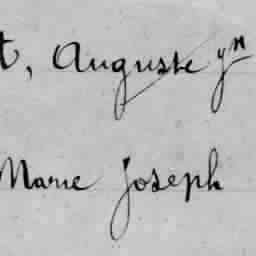 t, Auguste yn
Marie Joseph